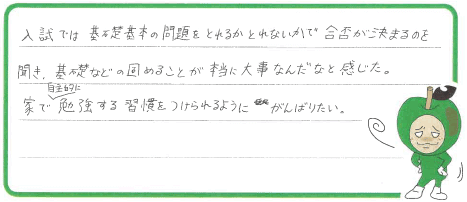 入試では基礎基本の問題をとれるかとれないかで合否が決まるのを
聞き、基礎などの固めることが本当に大事なんだなと感じた。
自主的に
家で勉強する習慣をつけられるようにがんばりたい。